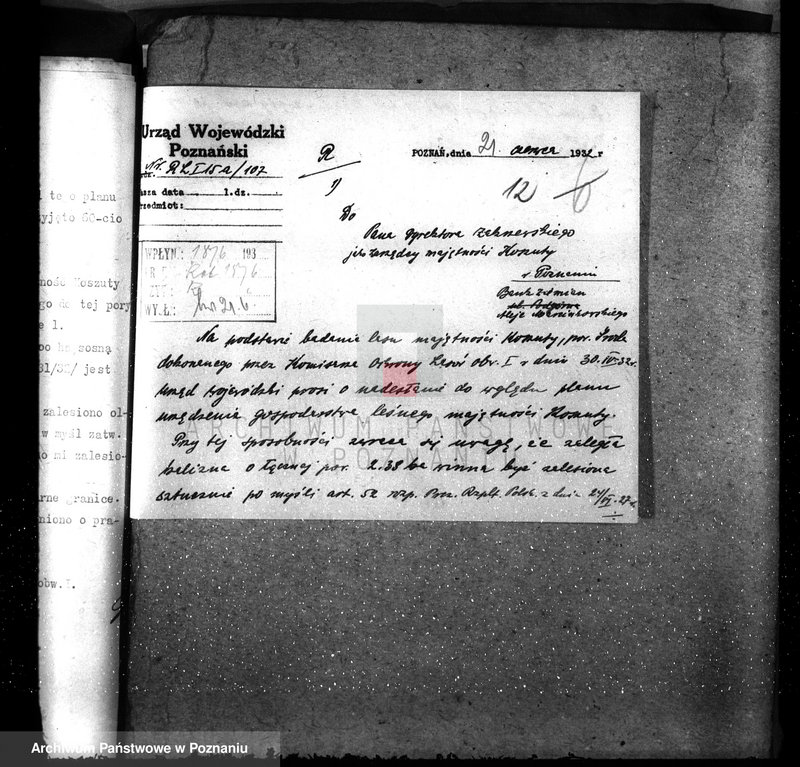 ł te o planu
yjęto 60-cio
ność Koszuty
go do tej pory
e 1.
sosną
31/32/ jest
zalesiono ol-
w myśl zatw.
o mi zalesio-
rne granice.
niono o pra-
obw.I.
Urząd Wojewódzki
Poznański
Nr. RL I 15a/107
asza data 1.dz.
rzedmiot:
R
POZNAŃ, dnia 21 czerwca 1932 r
12 6
1)
WPŁYN: 18/6 193
18/6
WYŁ: 21.6.
Do
Pana Dyrektora
jako zarządcy majętności Koszuty
w Poznaniu
Bank Ziemian
Aleje Marcinkowskiego
Na podstawie badania lasu majętności Koszuty, pow. Środa
dokonanego przez Komisarza Ochrony Lasów obw. I w dniu 30.IV.32r.
urząd wojewódzki prosi o nadesłanie do wglądu planu
urządzenia gospodarstwa leśnego majętności Koszuty.
Przy tej sposobności zwraca się uwagę, że zaległa
halizna o łącznej pow. 2.38 ha winna być zalesiona
sztucznie po myśli art. 52 rozp. Prez. Rzplt. Polsk. z dnia 24/VI.27r.
ARCHIWUM PAŃSTWOWE
W POZNANIU
Archiwum Państwowe w Poznaniu